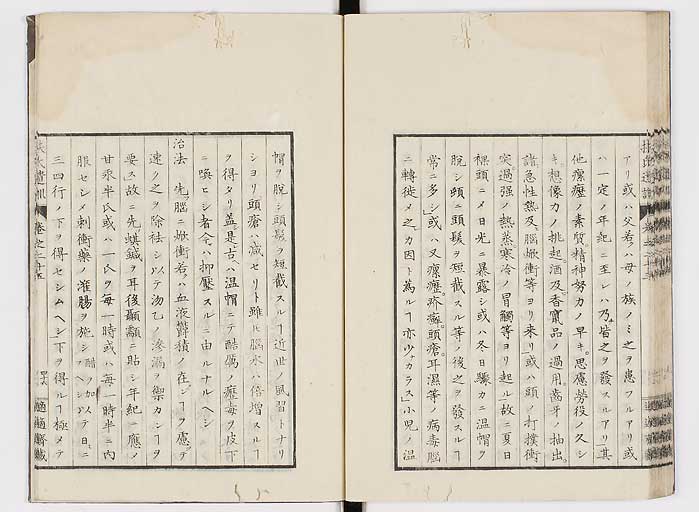 アリ或ハ父若クハ母ノ族ノミ之ヲ患フルアリ或
ハ一定ノ年紀ニ至レハ乃チ皆之ヲ發スルアリ其
他瘰癧ノ素質精神努力ノ早キ思慮勞役ノ久シ
キ想像力ノ挑起酒及香竄品ノ過用齒牙ノ抽出
諸急性熱及腦焮衝等ヨリ来リ或ハ頭ノ打撲衝
突過强ノ熱蒸寒冷ノ冒觸等ヨリ起ル故ニ夏日
裸頭ニメ日光ニ暴露シ或ハ冬日驟カニ温帽ヲ
脱シ頭ニ頭髮ヲ短截スル等ノ後之ヲ發スルヿ
常ニ多シ或ハ又瘰癧疥癬頭瘡耳濕等ノ病毒腦
ニ轉徙メ之カ因ト為ルヿ亦少カラス小児ノ温
帽ヲ脱シ頭髮ヲ短截スルヿ近世ノ風習トナリ
シヨリ頭瘡ハ減セリト雖𪜈腦水ハ倍増スルヿ
ヲ得タリ蓋是古ハ温帽ニテ酷厲ノ癧毒ヲ皮下
ニ喚ヒシ者今ハ抑壓スルニ由ルナルヘシ
治法 先腦ニ焮衝若クハ血液鬱積ノ在シヿヲ慮テ
速ク之ヲ除袪シ以テ沕乙ノ滲漏ヲ禦カンヿヲ
要ス故ニ先蜞鍼ヲ耳後顳顬ニ貼シ年紀ニ應ノ
甘汞半氏或ハ一氏ヲ毎一時或ハ毎一時半ニ内
服セシメ刺衝藥ノ灌腸ヲ施シ醋ヲ加以テ日ニ
三四行ノ下ヲ得セシムヘシ下ヲ得ルヿ極メテ
卷之二十五